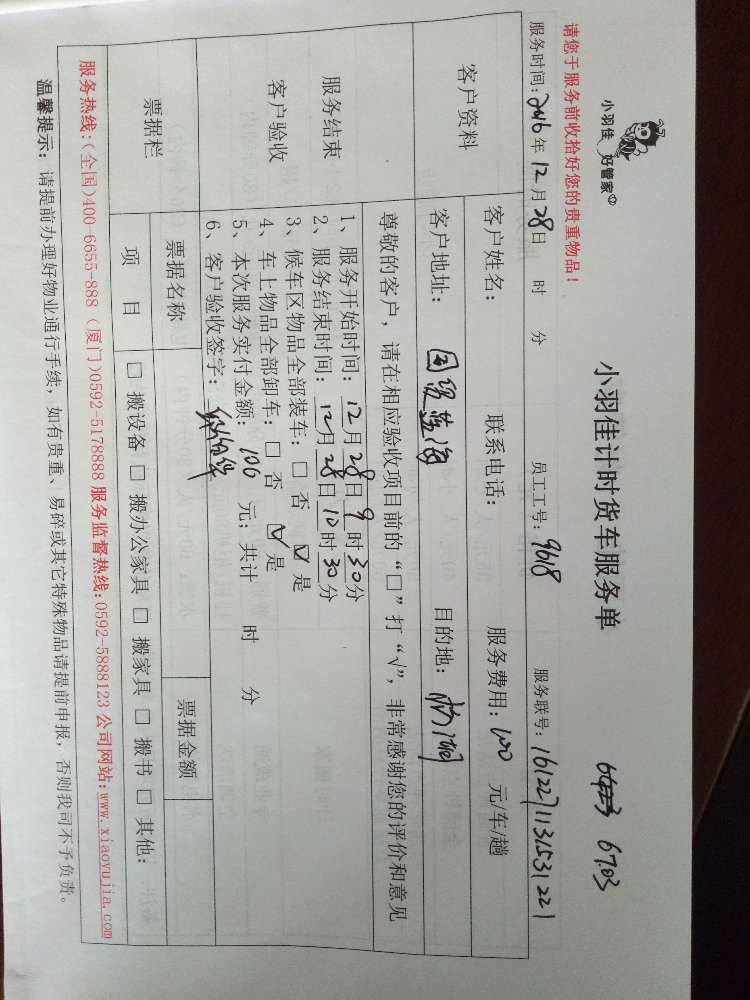 小羽佳 好管家
小羽佳计时货车服务单
6703
请您于服务前收拾好您的贵重物品！
服务时间：2016年12月28日 时 分 员工工号：9618 服务联号：1612271131531221
客户资料
客户姓名： 联系电话： 服务费用：100 元/车/趟
客户地址： 目的地：
服务结束
客户验收
尊敬的客户，请在相应验收项目前的“□”打“√”，非常感谢您的评价和意见
1、服务开始时间：12月28日9时30分
2、服务结束时间：12月28日10时30分
3、候车区物品全部装车：□否 ☑是
4、车上物品全部卸车：□否 ☑是
5、本次服务实付金额：100 元；共计 时 分
6、客户验收签字：
票据栏
票据名称 票据金额
项目 □搬设备 □搬办公家具 □搬家具 □搬书 □其他：
服务热线：(全国)400-6655-888（厦门)0592-5178888 服务监督热线：0592-5888123 公司网站：www.xiaoyujia.com
温馨提示：请提前办理好物业通行手续，如有贵重、易碎或其它特殊物品请提前申报，否则我司不予负责。